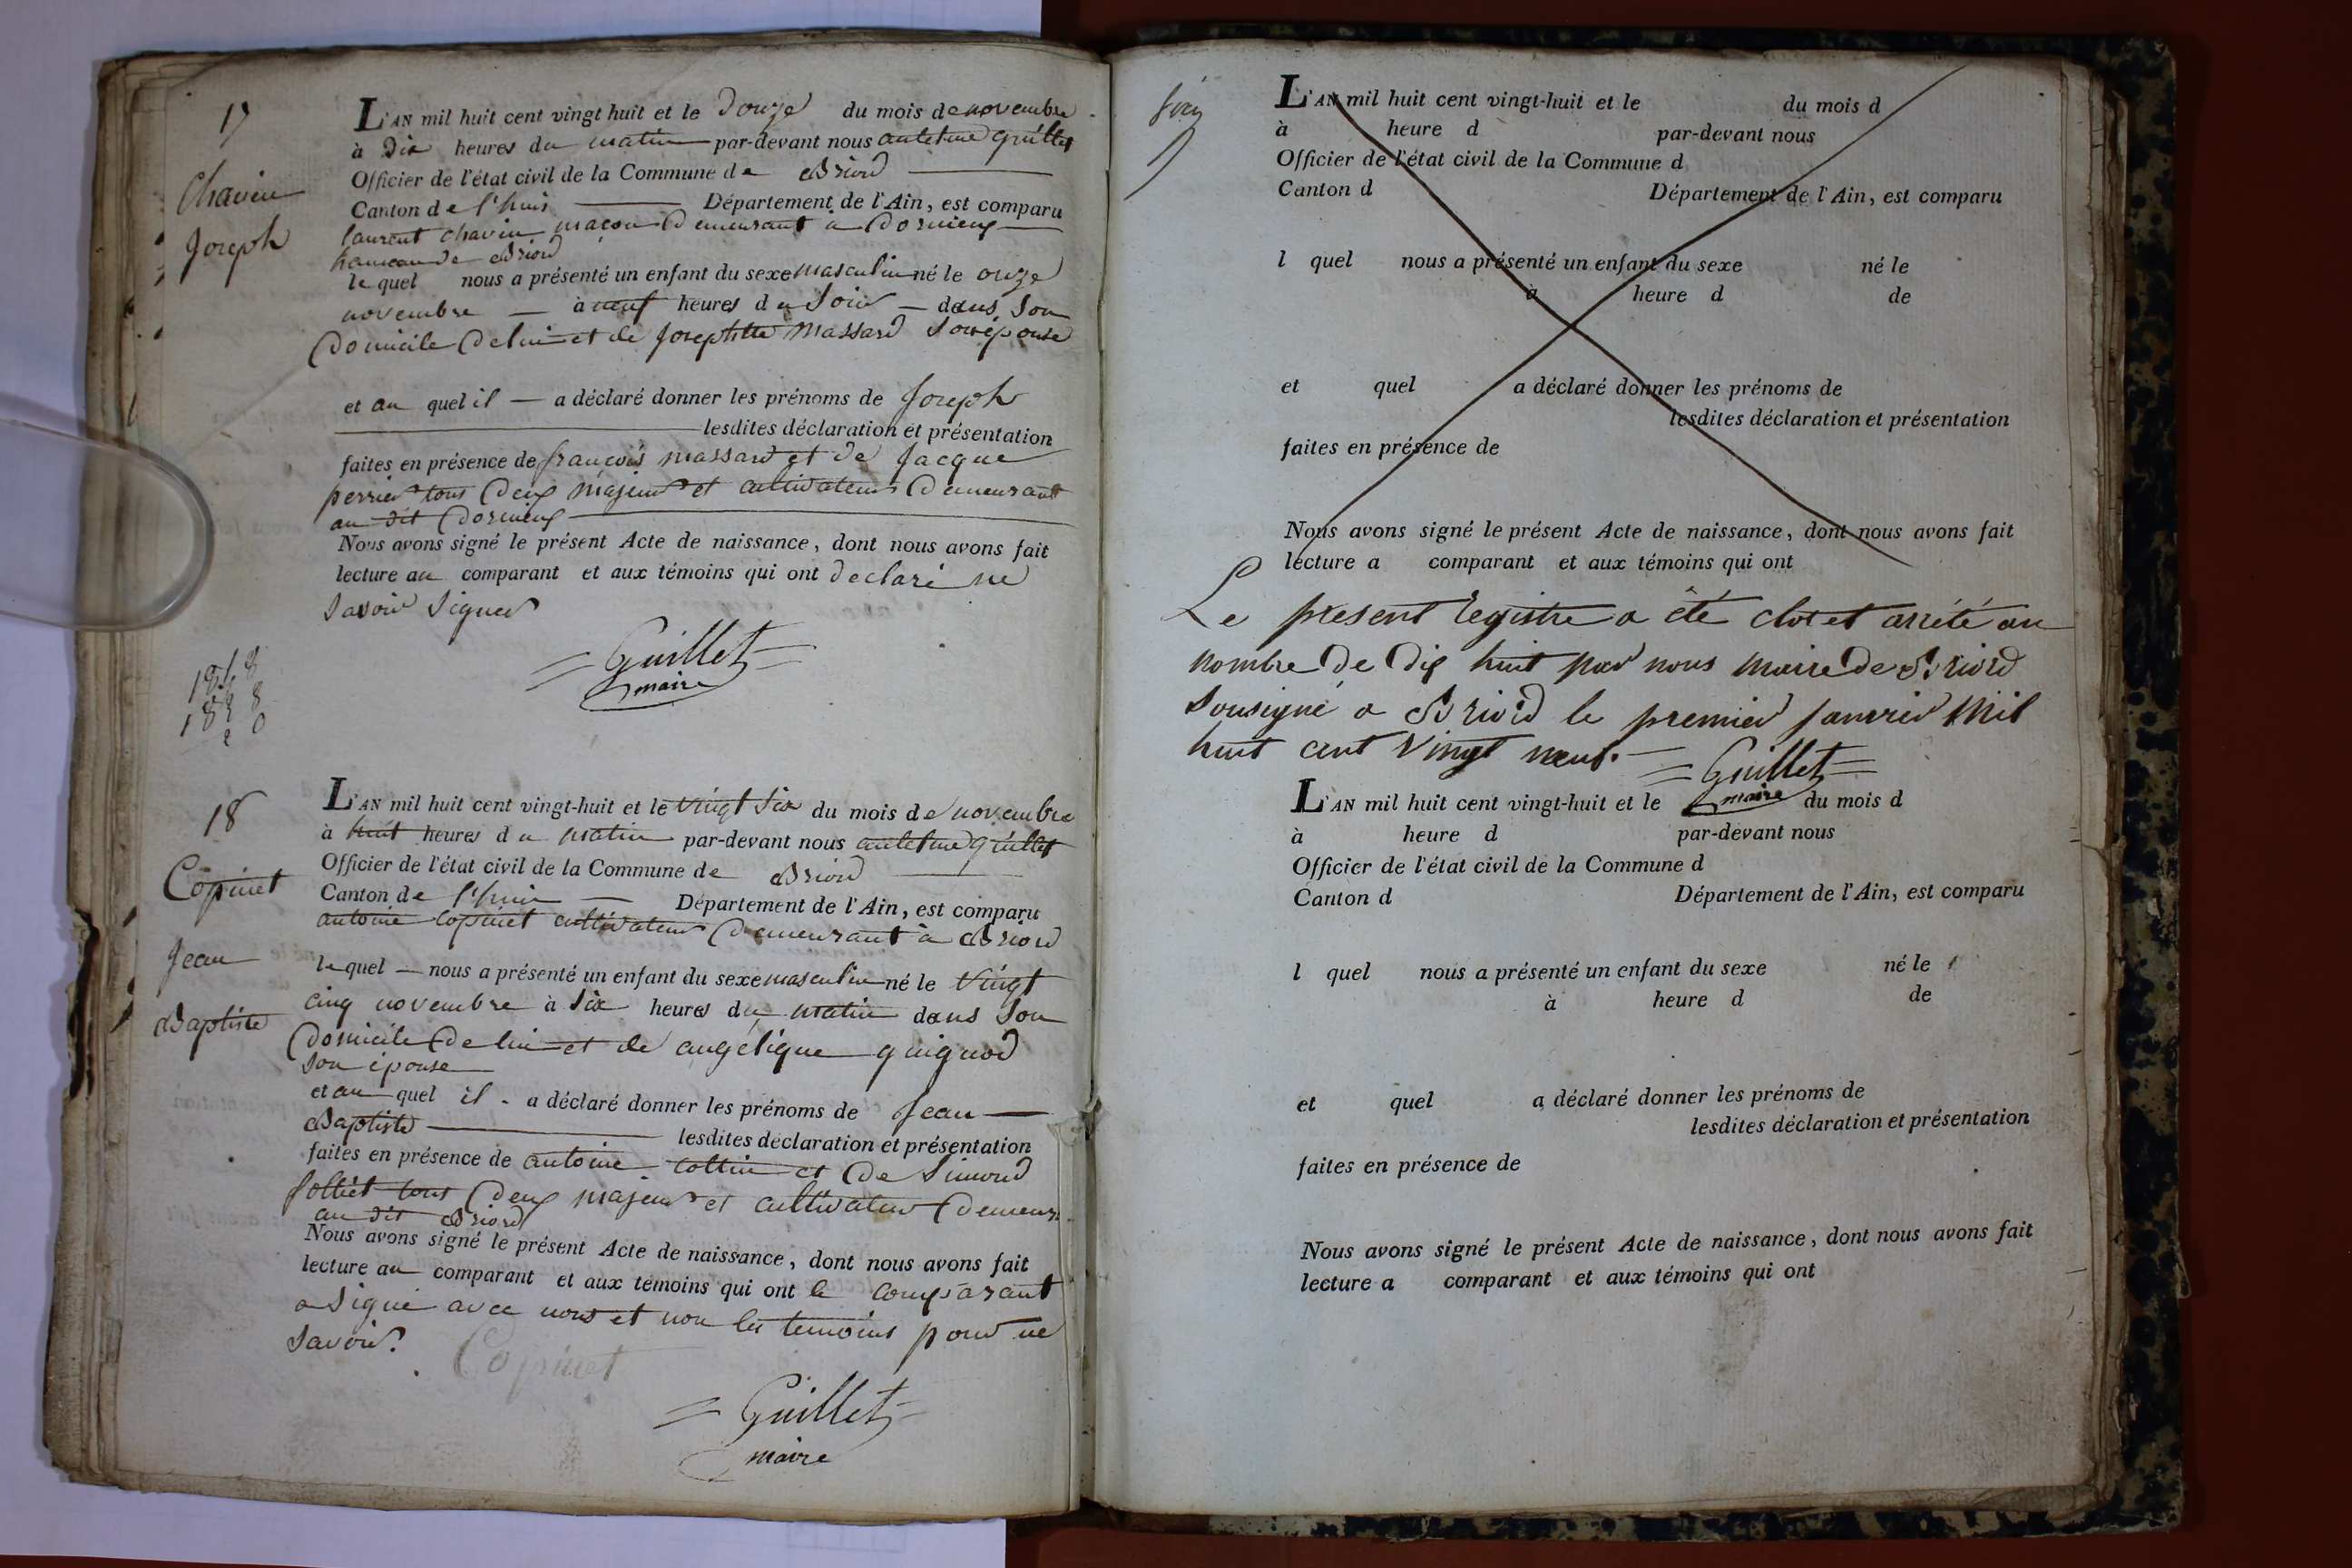 17
Chavin
Joseph
L'AN mil huit cent vingt huit et le douze du mois de novembre
à dix heures du matin par-devant nous antelme guillet
Officier de l'état civil de la Commune de Briord
Canton de l'huis Département de l'Ain, est comparu
laurent chavin maçon demeurant à Dornieux
hameau de Briord
lequel nous a présenté un enfant du sexe masculin né le onze
novembre à neuf heures du soir dans son
domicile de lui et de Josephtte massard son épouse
et au quel il a déclaré donner les prénoms de Joseph
lesdites déclaration et présentation
faites en présence de françois massard et de Jacque
perrier tous deux majeur et cultivateur demeurant
au dit Dornieux
Nous avons signé le présent Acte de naissance, dont nous avons fait
lecture au comparant et aux témoins qui ont declaré ne
savoir signer
Guillet
maire
18
Copinet
Jean
Baptiste
L'AN mil huit cent vingt-huit et le vingt six du mois de novembre
à huit heures du matin par-devant nous antelme guillet
Officier de l'état civil de la Commune de Briord
Canton de l'huis Département de l'Ain, est comparu
antoine copinet cultivateur demeurant à Briord
lequel nous a présenté un enfant du sexe masculin né le vingt
cinq novembre à six heures du matin dans son
domicile de lui et de angélique guignod
son épouse
et au quel il a déclaré donner les prénoms de Jean
Baptiste lesdites déclaration et présentation
faites en présence de antoine cottin et de Simond
Jolliet tous deux majeur et cultivateur demeur
au dit Briord
Nous avons signé le présent Acte de naissance, dont nous avons fait
lecture au comparant et aux témoins qui ont le comparant
a signé avec nous et non les temoins pour ne
savoir.
Copinet
Guillet
maire
L'AN mil huit cent vingt-huit et le du mois d
à heure d par-devant nous
Officier de l'état civil de la Commune d
Canton d Département de l'Ain, est comparu
l quel nous a présenté un enfant du sexe né le
à heure d de
et quel a déclaré donner les prénoms de
lesdites déclaration et présentation
faites en présence de
Nous avons signé le présent Acte de naissance, dont nous avons fait
lecture a comparant et aux témoins qui ont
Le present registre a été clot et arrété au
nombre de dix huit par nous maire de Briord
sousigné a Briord le premier janvier mil
huit cent vingt neuf.
Guillet
maire
L'AN mil huit cent vingt-huit et le du mois d
à heure d par-devant nous
Officier de l'état civil de la Commune d
Canton d Département de l'Ain, est comparu
l quel nous a présenté un enfant du sexe né le
à heure d de
et quel a déclaré donner les prénoms de
lesdites déclaration et présentation
faites en présence de
Nous avons signé le présent Acte de naissance, dont nous avons fait
lecture a comparant et aux témoins qui ont